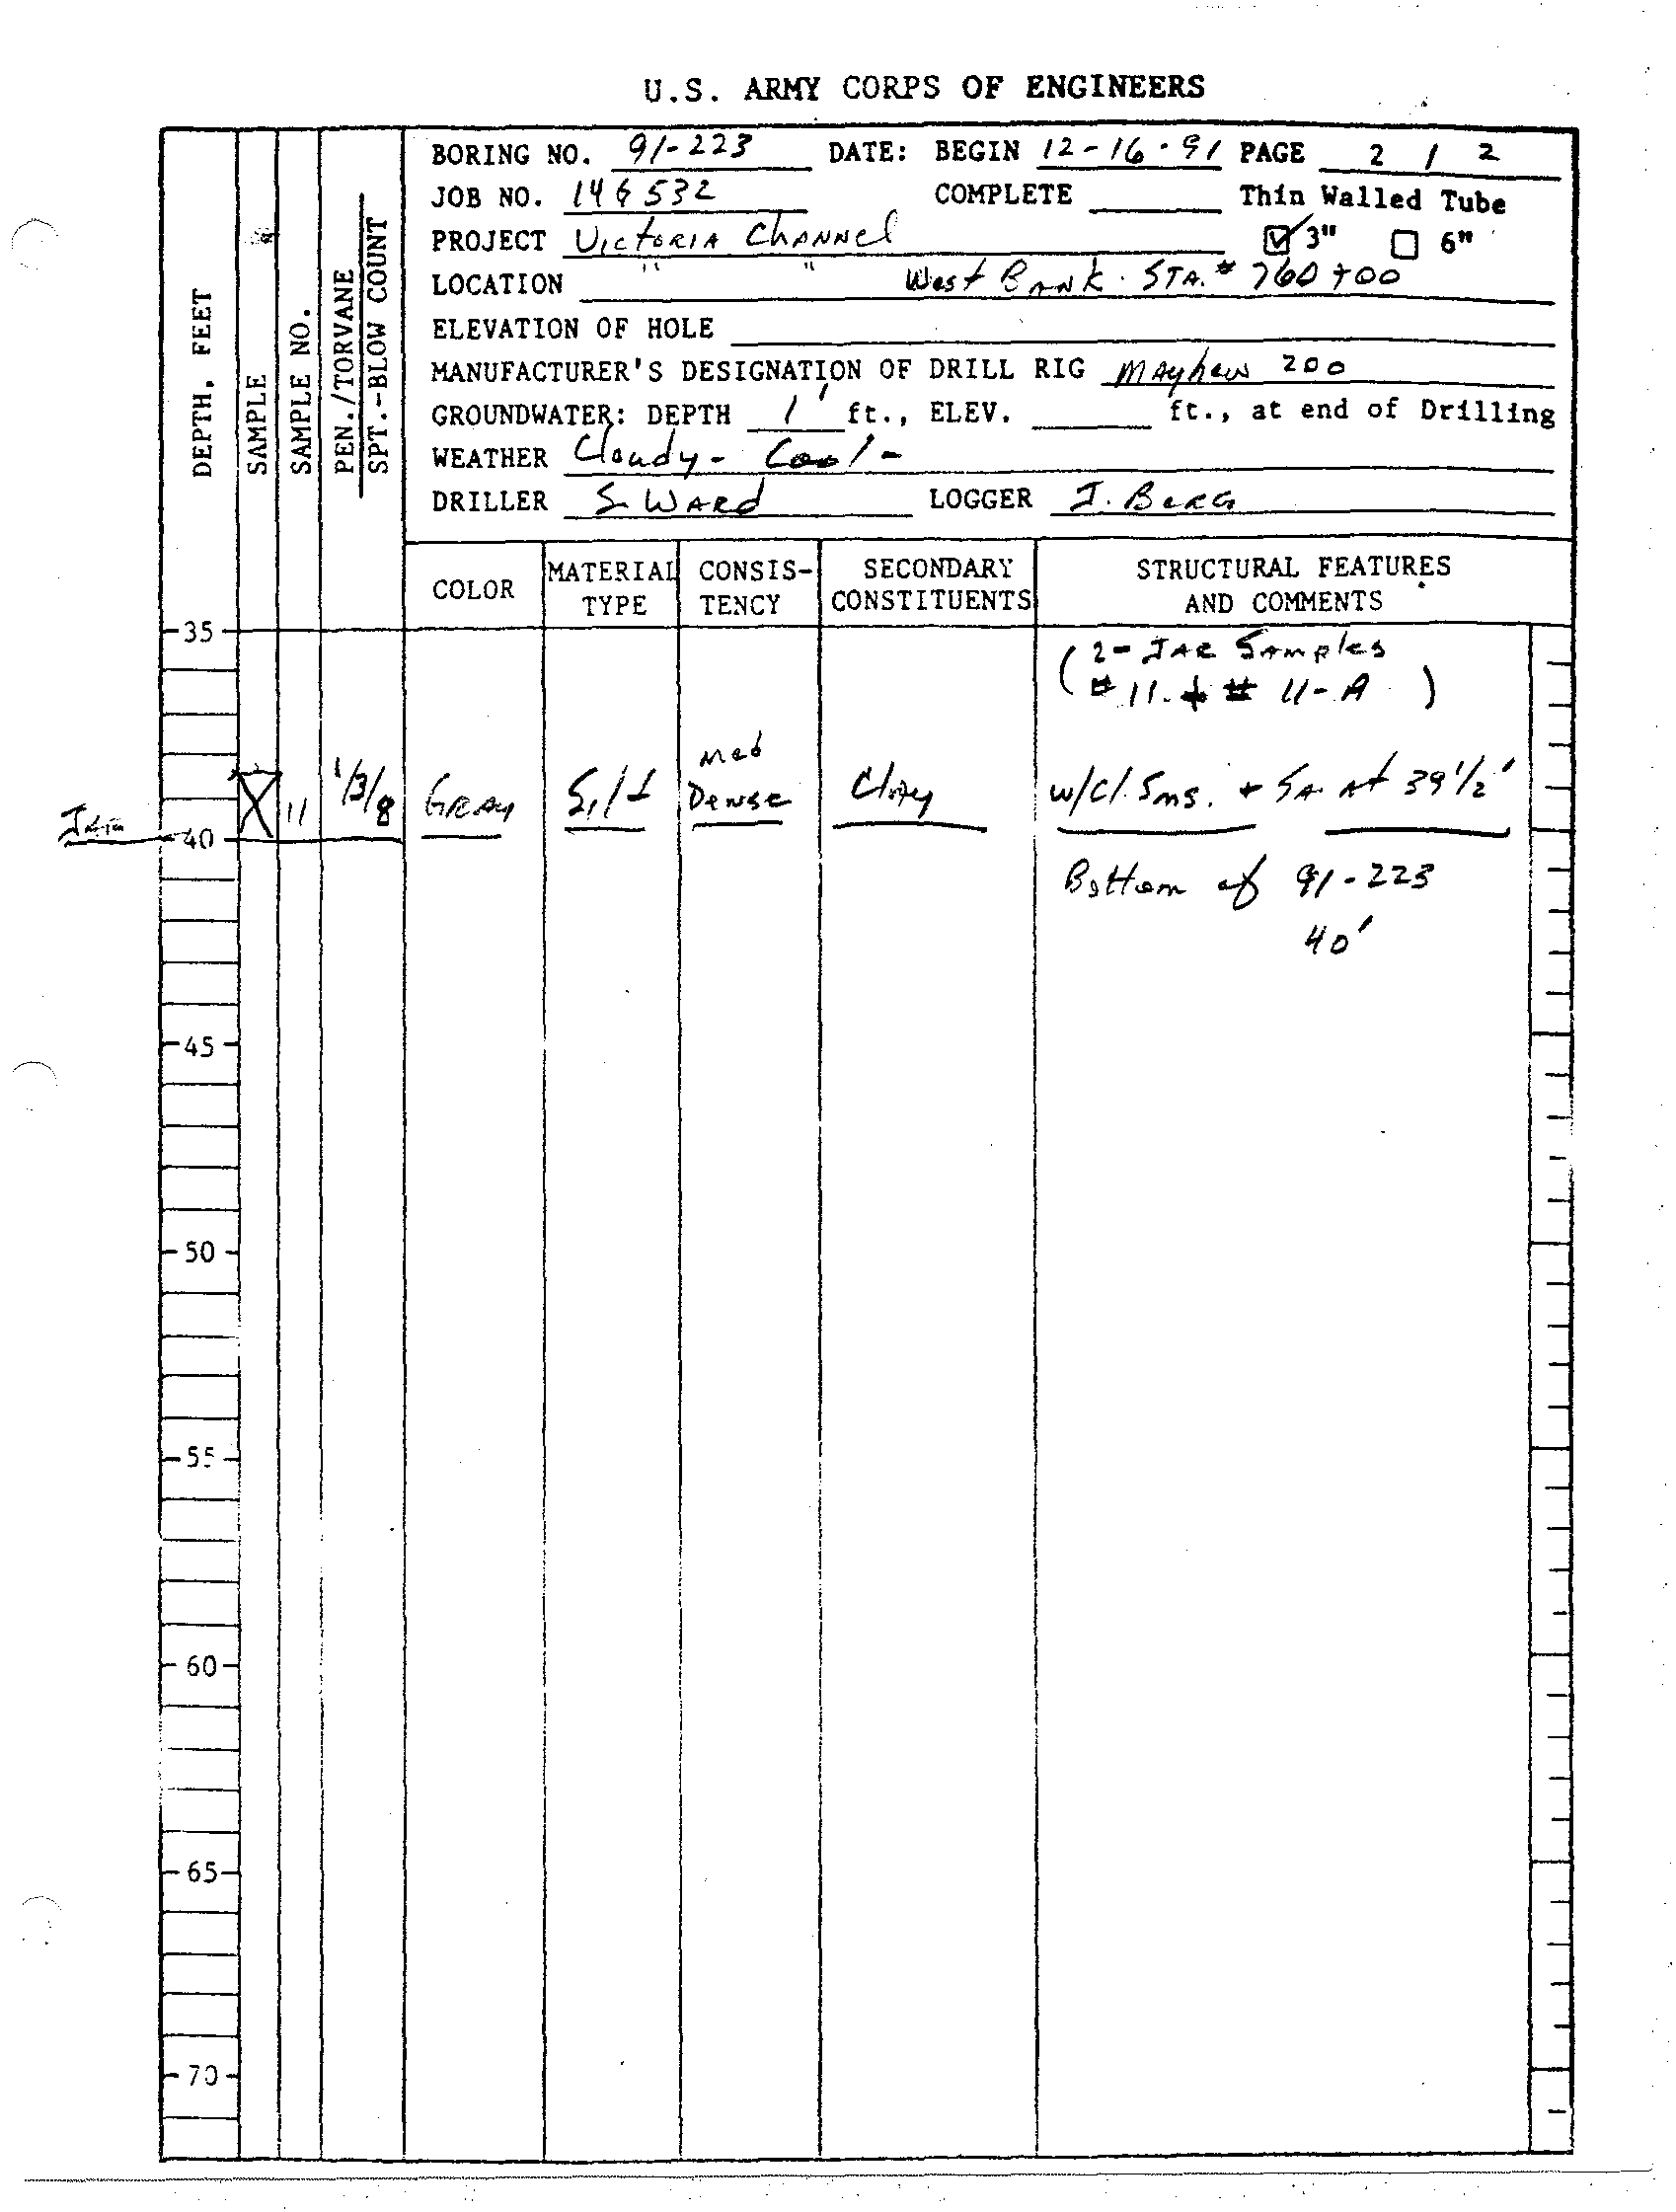 U.S. ARMY CORPS OF ENGINEERS
BORING NO. 91-223 DATE: BEGIN 12-16-91 PAGE 2 / 2
JOB NO. COMPLETE Thin Walled Tube
PROJECT Victoria Channel 3" 6"
LOCATION " " West Bank. STA.# 760+00
ELEVATION OF HOLE
MANUFACTURER'S DESIGNATION OF DRILL RIG Mayhew 200
GROUNDWATER: DEPTH 1' ft., ELEV. ft., at end of Drilling
WEATHER Cloudy - Cool -
DRILLER S. Ward LOGGER J. Berg
DEPTH, FEET
SAMPLE
SAMPLE NO.
PEN./TORVANE
SPT.-BLOW COUNT
COLOR MATERIAL TYPE CONSIS-TENCY SECONDARY CONSTITUENTS STRUCTURAL FEATURES AND COMMENTS
35
(2- JAR Samples
#11. + # 11-A)
11 1/3/8 GRAY Silt Med Dense Clay w/Cl. Sms. + SA. At 39 1/2'
40
Bottom of 91-223
40'
45
50
55
60
65
70